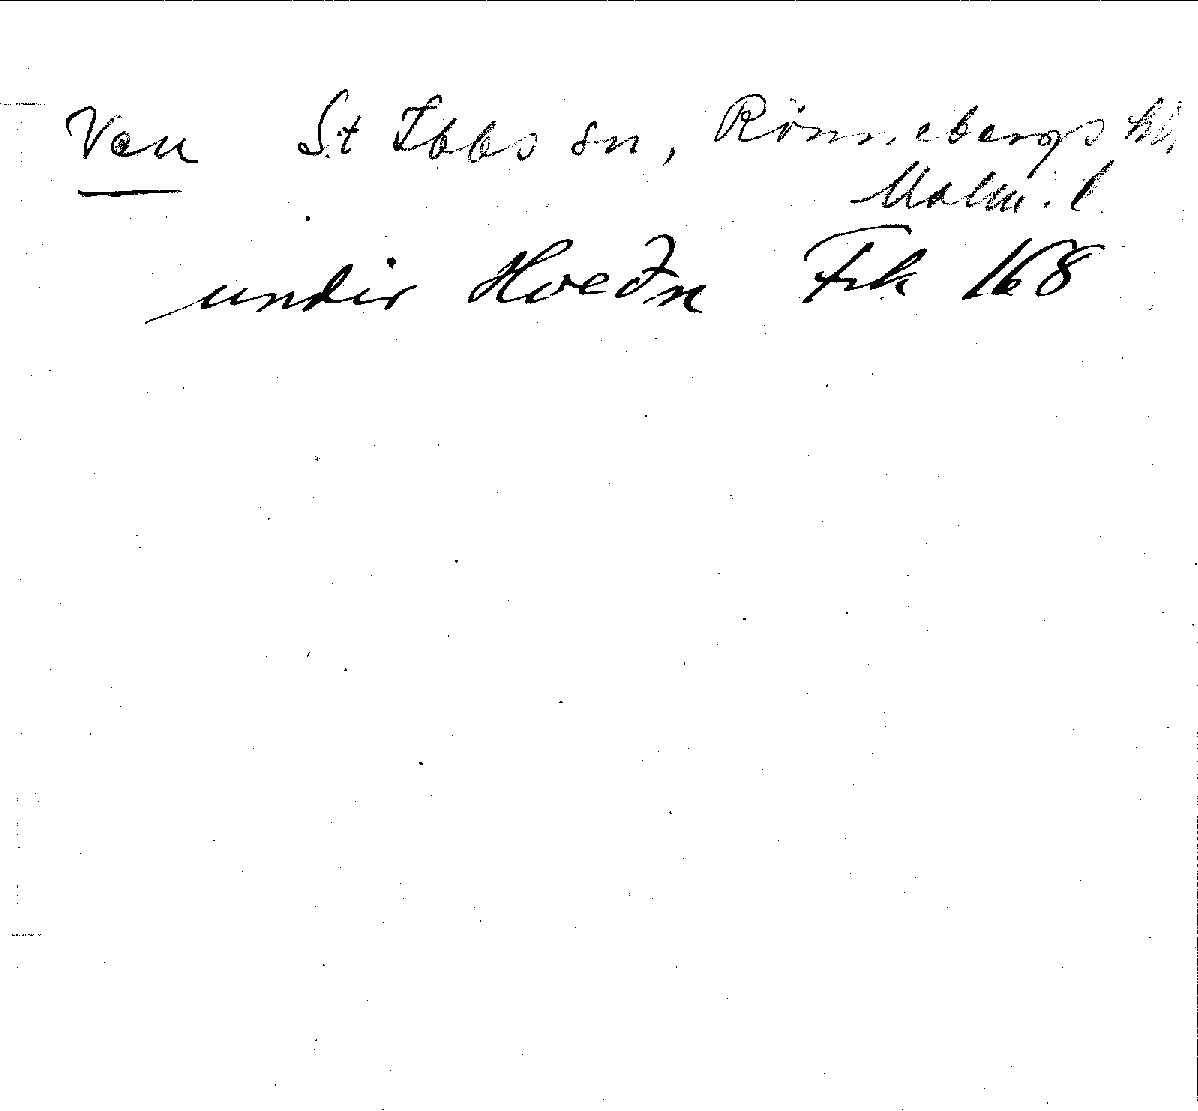 Ven St Ibbs sn, Rönnebergs hd,
Malm. l.
undir Hveðn Fsk 168